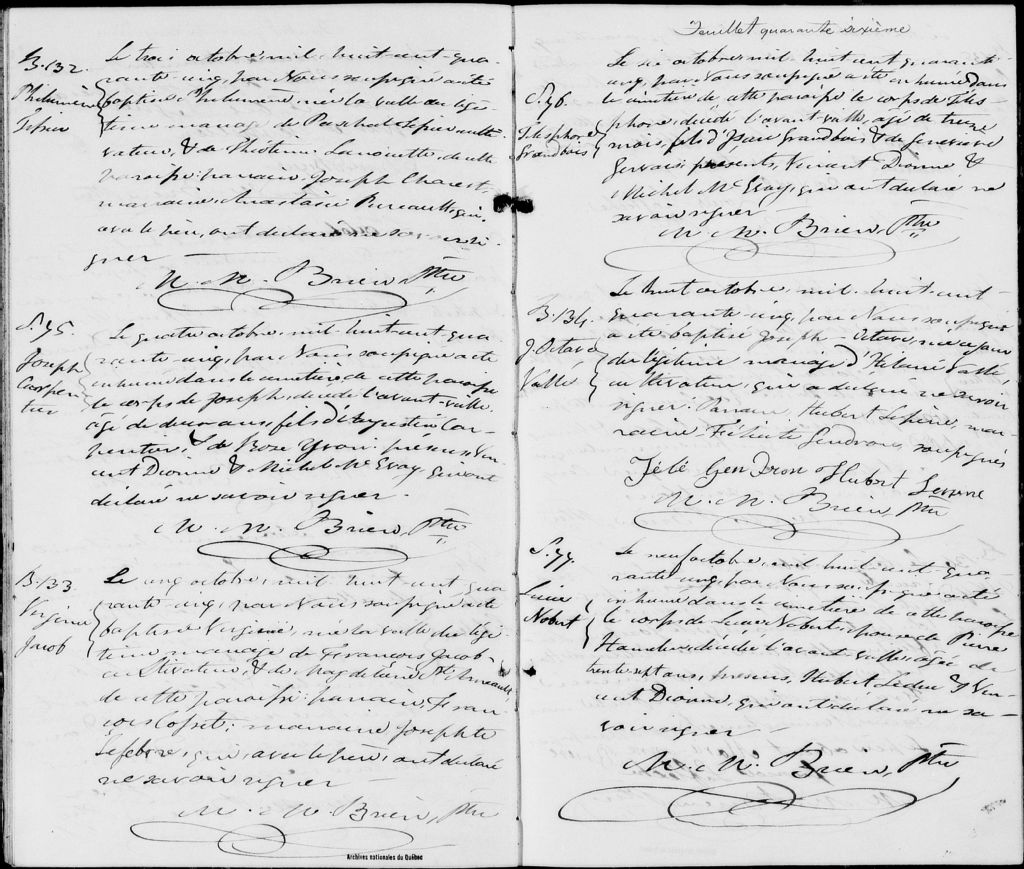 B. 132.
Philumène
Lépine
Le trois octobre, mil huit cent qua-
rante cinq, par Nous soussigné a été
baptisé Philumène, née la veille du légi-
time mariage de Paschal Lépine culti-
vateur, & de Lanouette, de cette
paroisse: parrain, Joseph Charest,
marraine, Anastasie qui,
avec le père, ont déclaré ne savoir si-
gner
N. M. Brien, Ptre
S. 75
Joseph
Carpen-
tier
Le quatre octobre, mil huit cent qua-
rante cinq, par Nous soussigné a été
inhumé dans le cimetière de cette paroisse
le corps de Joseph, décédé l'avant-veille,
âgé de deux ans, fils d'Augustin Car-
pentier, & de Rose Yvon: présens Vin-
cent Dionne & Michel McEvay, qui ont
déclaré ne savoir signer.
N. M. Brien, Ptre
B. 133
Virginie
Jacob
Le cinq octobre, mil huit cent qua-
rante cinq, par Nous soussigné a été
baptisé Virginie, née la veille du légi-
time mariage de François Jacob
cultivateur, & de Magdeleine
de cette paroisse: parrain, Fran-
çois Cosset; marraine Josephte
Lefebvre, qui, avec le père, ont déclaré
ne savoir signer
N. M. Brien, Ptre
Archives nationales du Québec
Feuillet quarante sixième
S. 76.
Télesphore
Grandbois
Le six octobre, mil huit cent quarante
cinq, par Nous soussigné a été inhumé dans
le cimetière de cette paroisse le corps de Téles-
phore, décédé l'avant-veille, âgé de treize
mois, fils d'Isaie Grandbois & de Geneviève
Gervais présents, Vincent Dionne &
Michel McEvay, qui ont déclaré ne
savoir signer
N. M. Brien, Ptre
B. 134.
J. Octave
Vallé
Le huit octobre, mil huit cent
quarante cinq, par Nous soussigné
a été baptisé Joseph Octave, né ce jour
du légitime mariage d'Hilaire Vallé,
cultivateur, qui a déclaré ne savoir
signer: Parrain, Hubert Lépine, mar-
raine Félicité Gendron, soussignés
Félé Gendron Hubert Lepine
N. M. Brien, Ptre
S. 77.
Lucie
Nobert
Le neuf octobre, mil huit cent qua-
rante cinq, par Nous soussigné a été
inhumé dans le cimetière de cette paroisse
le corps de Lucie Nobert, épouse de Pierre
Hamelin, décédée l'avant-veille, âgée de
trente sept ans, présens, Hubert Leduc & Vin-
cent Dionne, qui ont déclaré ne sa-
voir signer
N. M. Brien, Ptre